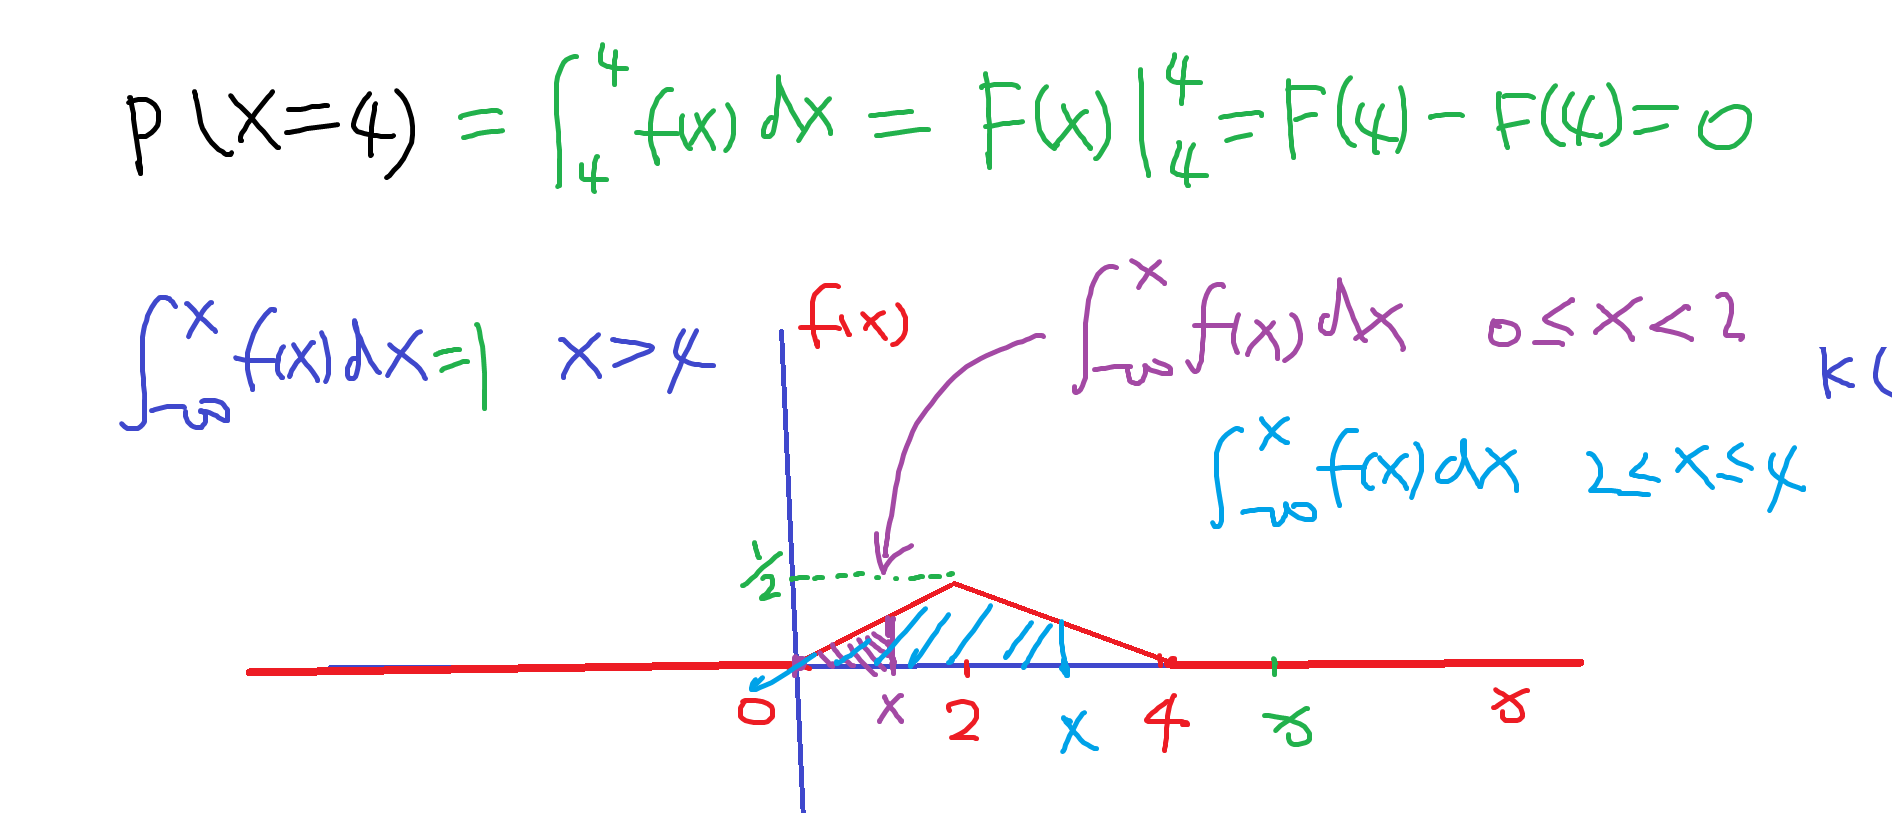 P(X=4) = ∫₄⁴ f(x) dx = F(x)|₄⁴ = F(4) − F(4) = 0
f(x)
∫₋∞ˣ f(x) dx 0 ≤ x < 2
∫₋∞ˣ f(x) dx = 1 x > 4
K(
∫₋∞ˣ f(x) dx 2 ≤ x ≤ 4
1/2
0 x 2 x 4